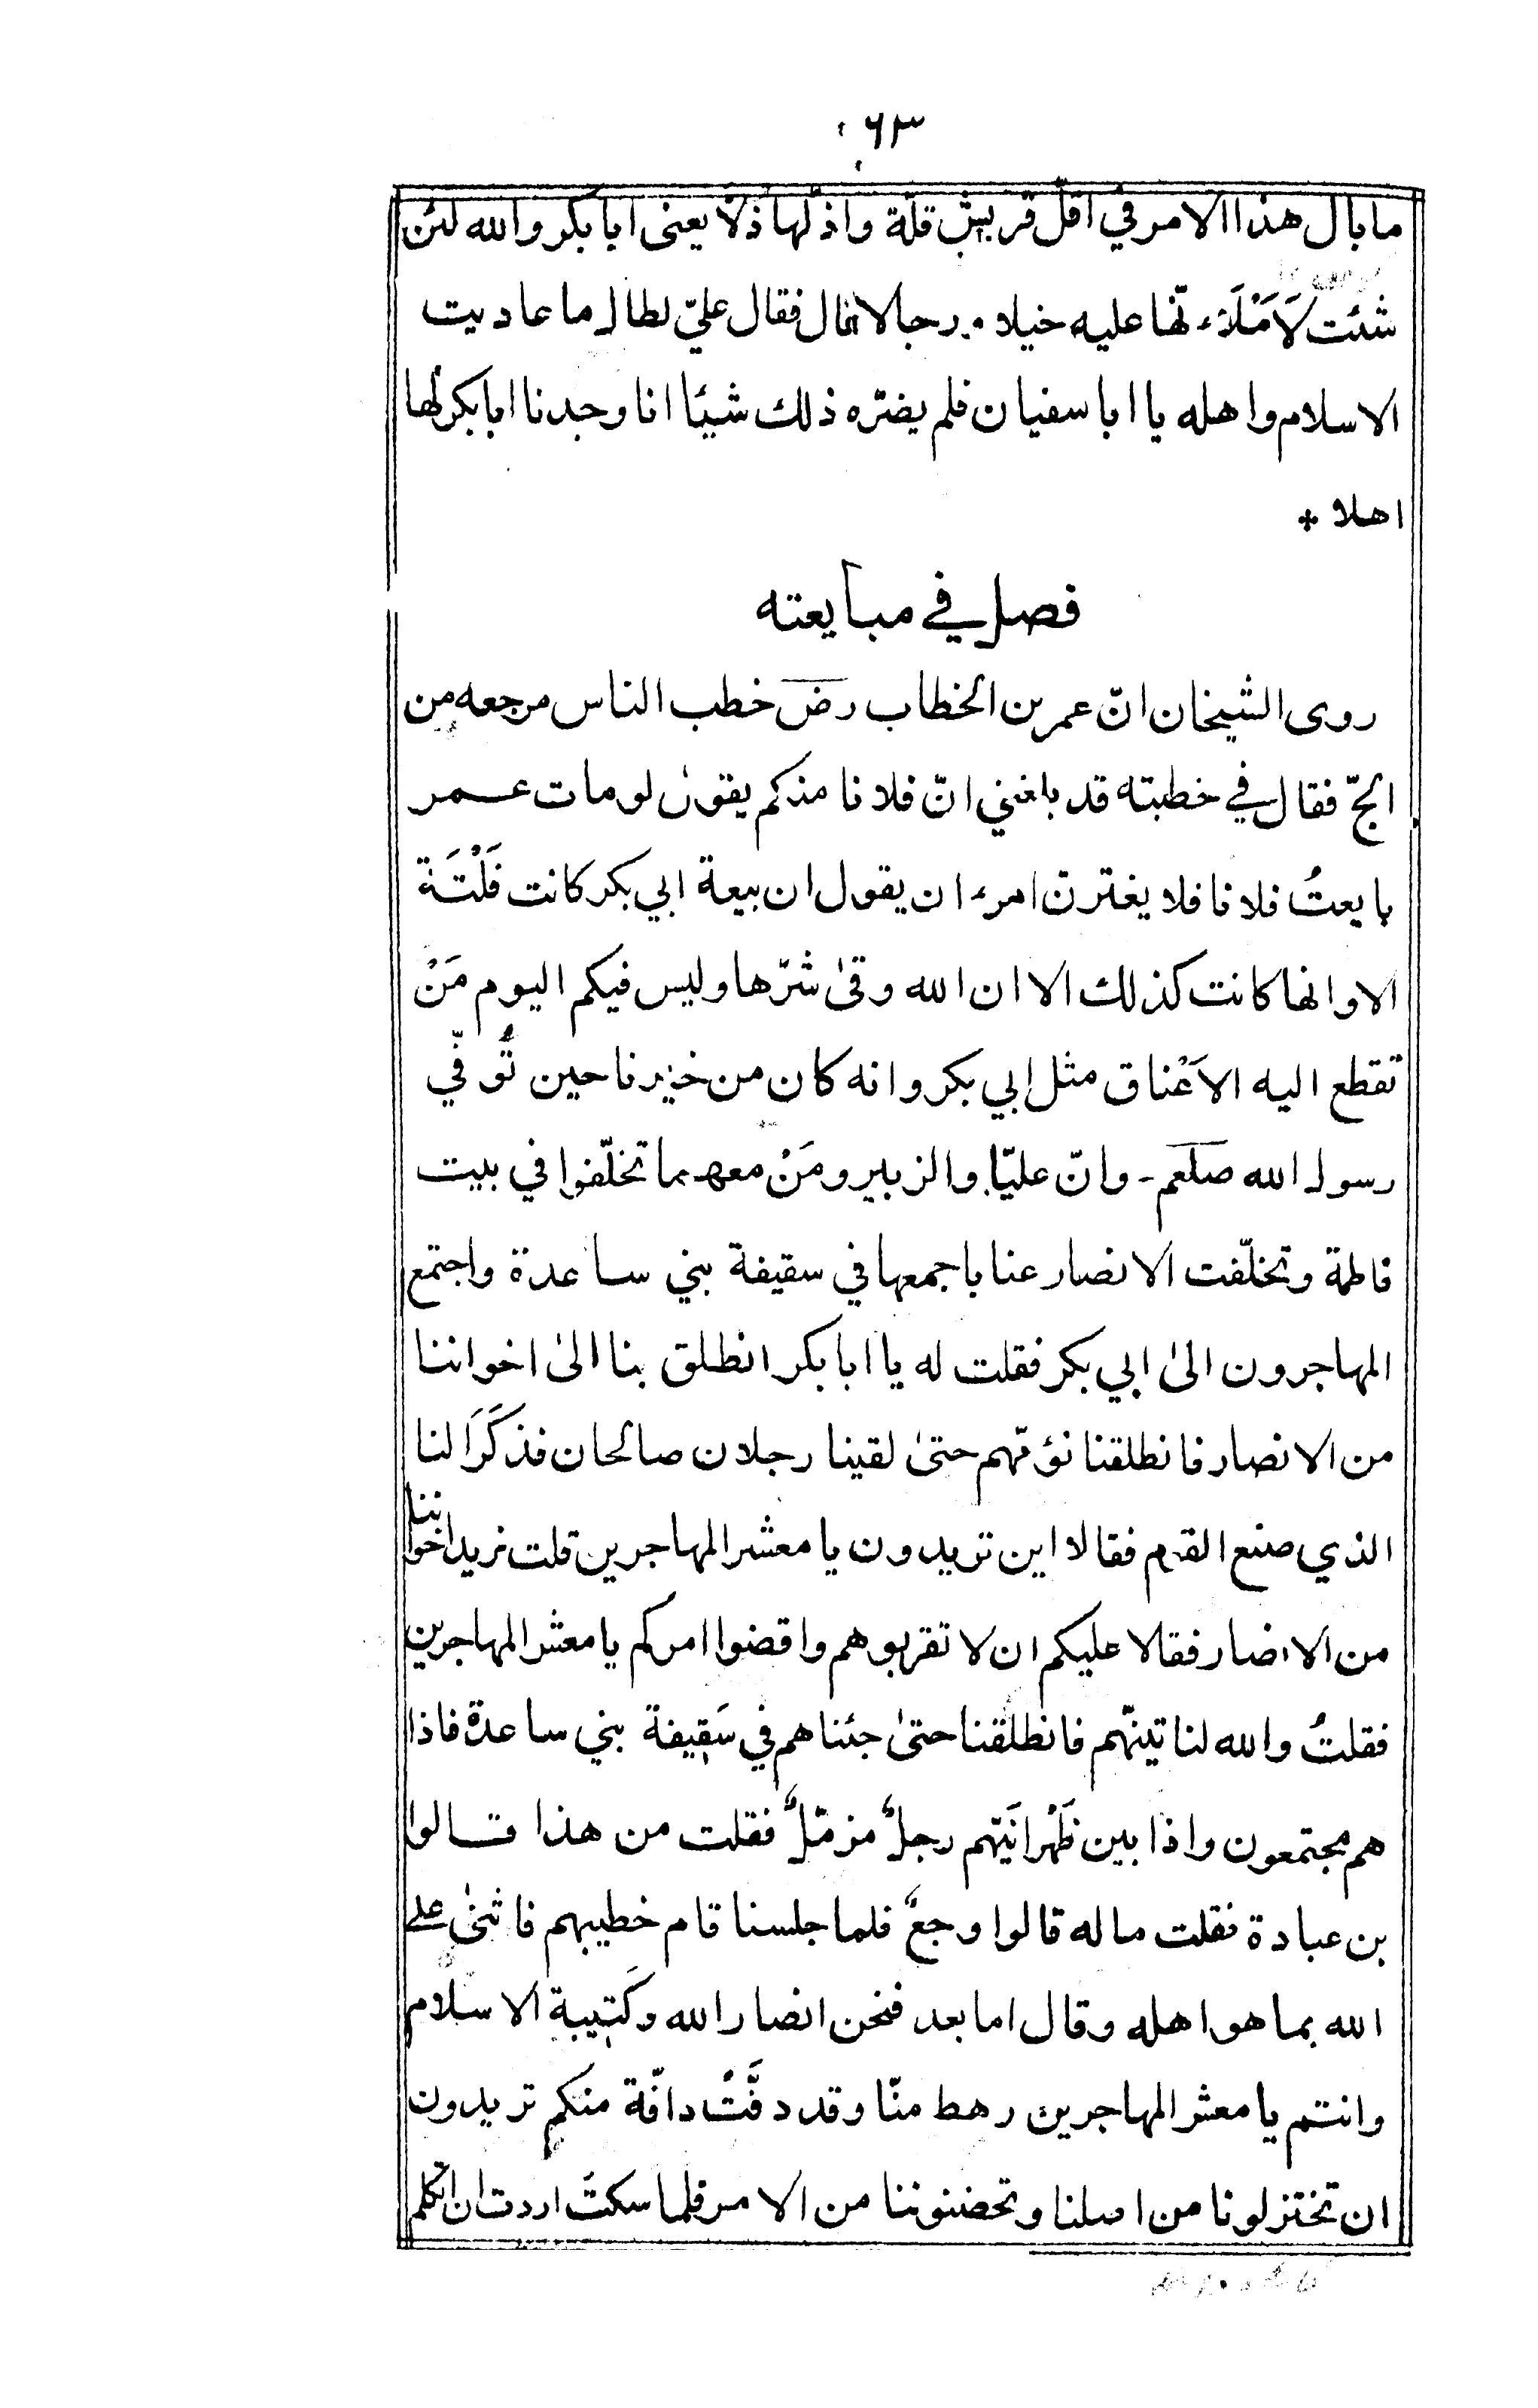 ٦٣
ما بال هذا الامر في اقلّ قريش قلّة واذلّها ذلّا يعنى ابا بكر والله لئن
شئت لَاَمْلَاَء نّها عليه خيلا ورجالا قال فقال عليّ لطال ما عاديت
الاسلام واهله يا ابا سفيان فلم يضرّه ذلك شيئا انا وجدنا ابا بكر لها
اهلا *
فصل في مبايعته
روى الشيخان انّ عمر بن الخطاب رض خطب الناس مرجعه من
الحجّ فقال في خطبته قد بلغني انّ فلانا منكم يقول لو مات عمر
بايعتُ فلانا فلا يغترن امرء ان يقول ان بيعة ابي بكر كانت فَلْتَة
الا وانها كانت كذلك الا ان الله وقىٰ شرّها وليس فيكم اليوم مَنْ
تقطع اليه الاَعْناق مثل ابي بكر وانه كان من خيرنا حين تُوفّي
رسول الله صلعم - وانّ عليّا والزبير ومَنْ معهما تخلّفوا في بيت
فاطمة وتخلّفت الانصار عنا باجمعها في سقيفة بني ساعدة واجتمع
المهاجرون الىٰ ابي بكر فقلت له يا ابا بكر انطلق بنا الىٰ اخواننا
من الانصار فانطلقنا نؤمّهم حتىٰ لقينا رجلان صالحان فذكَرَا لنا
الذي صنع القوم فقالا اين تريدون يا معشر المهاجرين قلت نريد اخواننا
من الانصار فقالا عليكم ان لا تقربوهم واقضوا امركم يا معشر المهاجرين
فقلتُ والله لناتينّهم فانطلقنا حتىٰ جئناهم في سَقِيفة بني ساعدة فاذا
هم مجتمعون واذا بين ظَهْرانَيْهم رجلٌ مزمّلٌ فقلت من هذا قالوا
بن عبادة فقلت ما له قالوا وجعٌ فلما جلسنا قام خطيبهم فاثنىٰ على
الله بما هو اهله وقال اما بعد فنحن انصار الله وكَتِيبة الاسلام
وانتم يا معشر المهاجرين رهط منّا وقد دفَّتْ دافّة منكم تريدون
ان تختزلونا من اصلنا وتحضنوننا من الامر فلما سكتَ اردت ان اتكلم